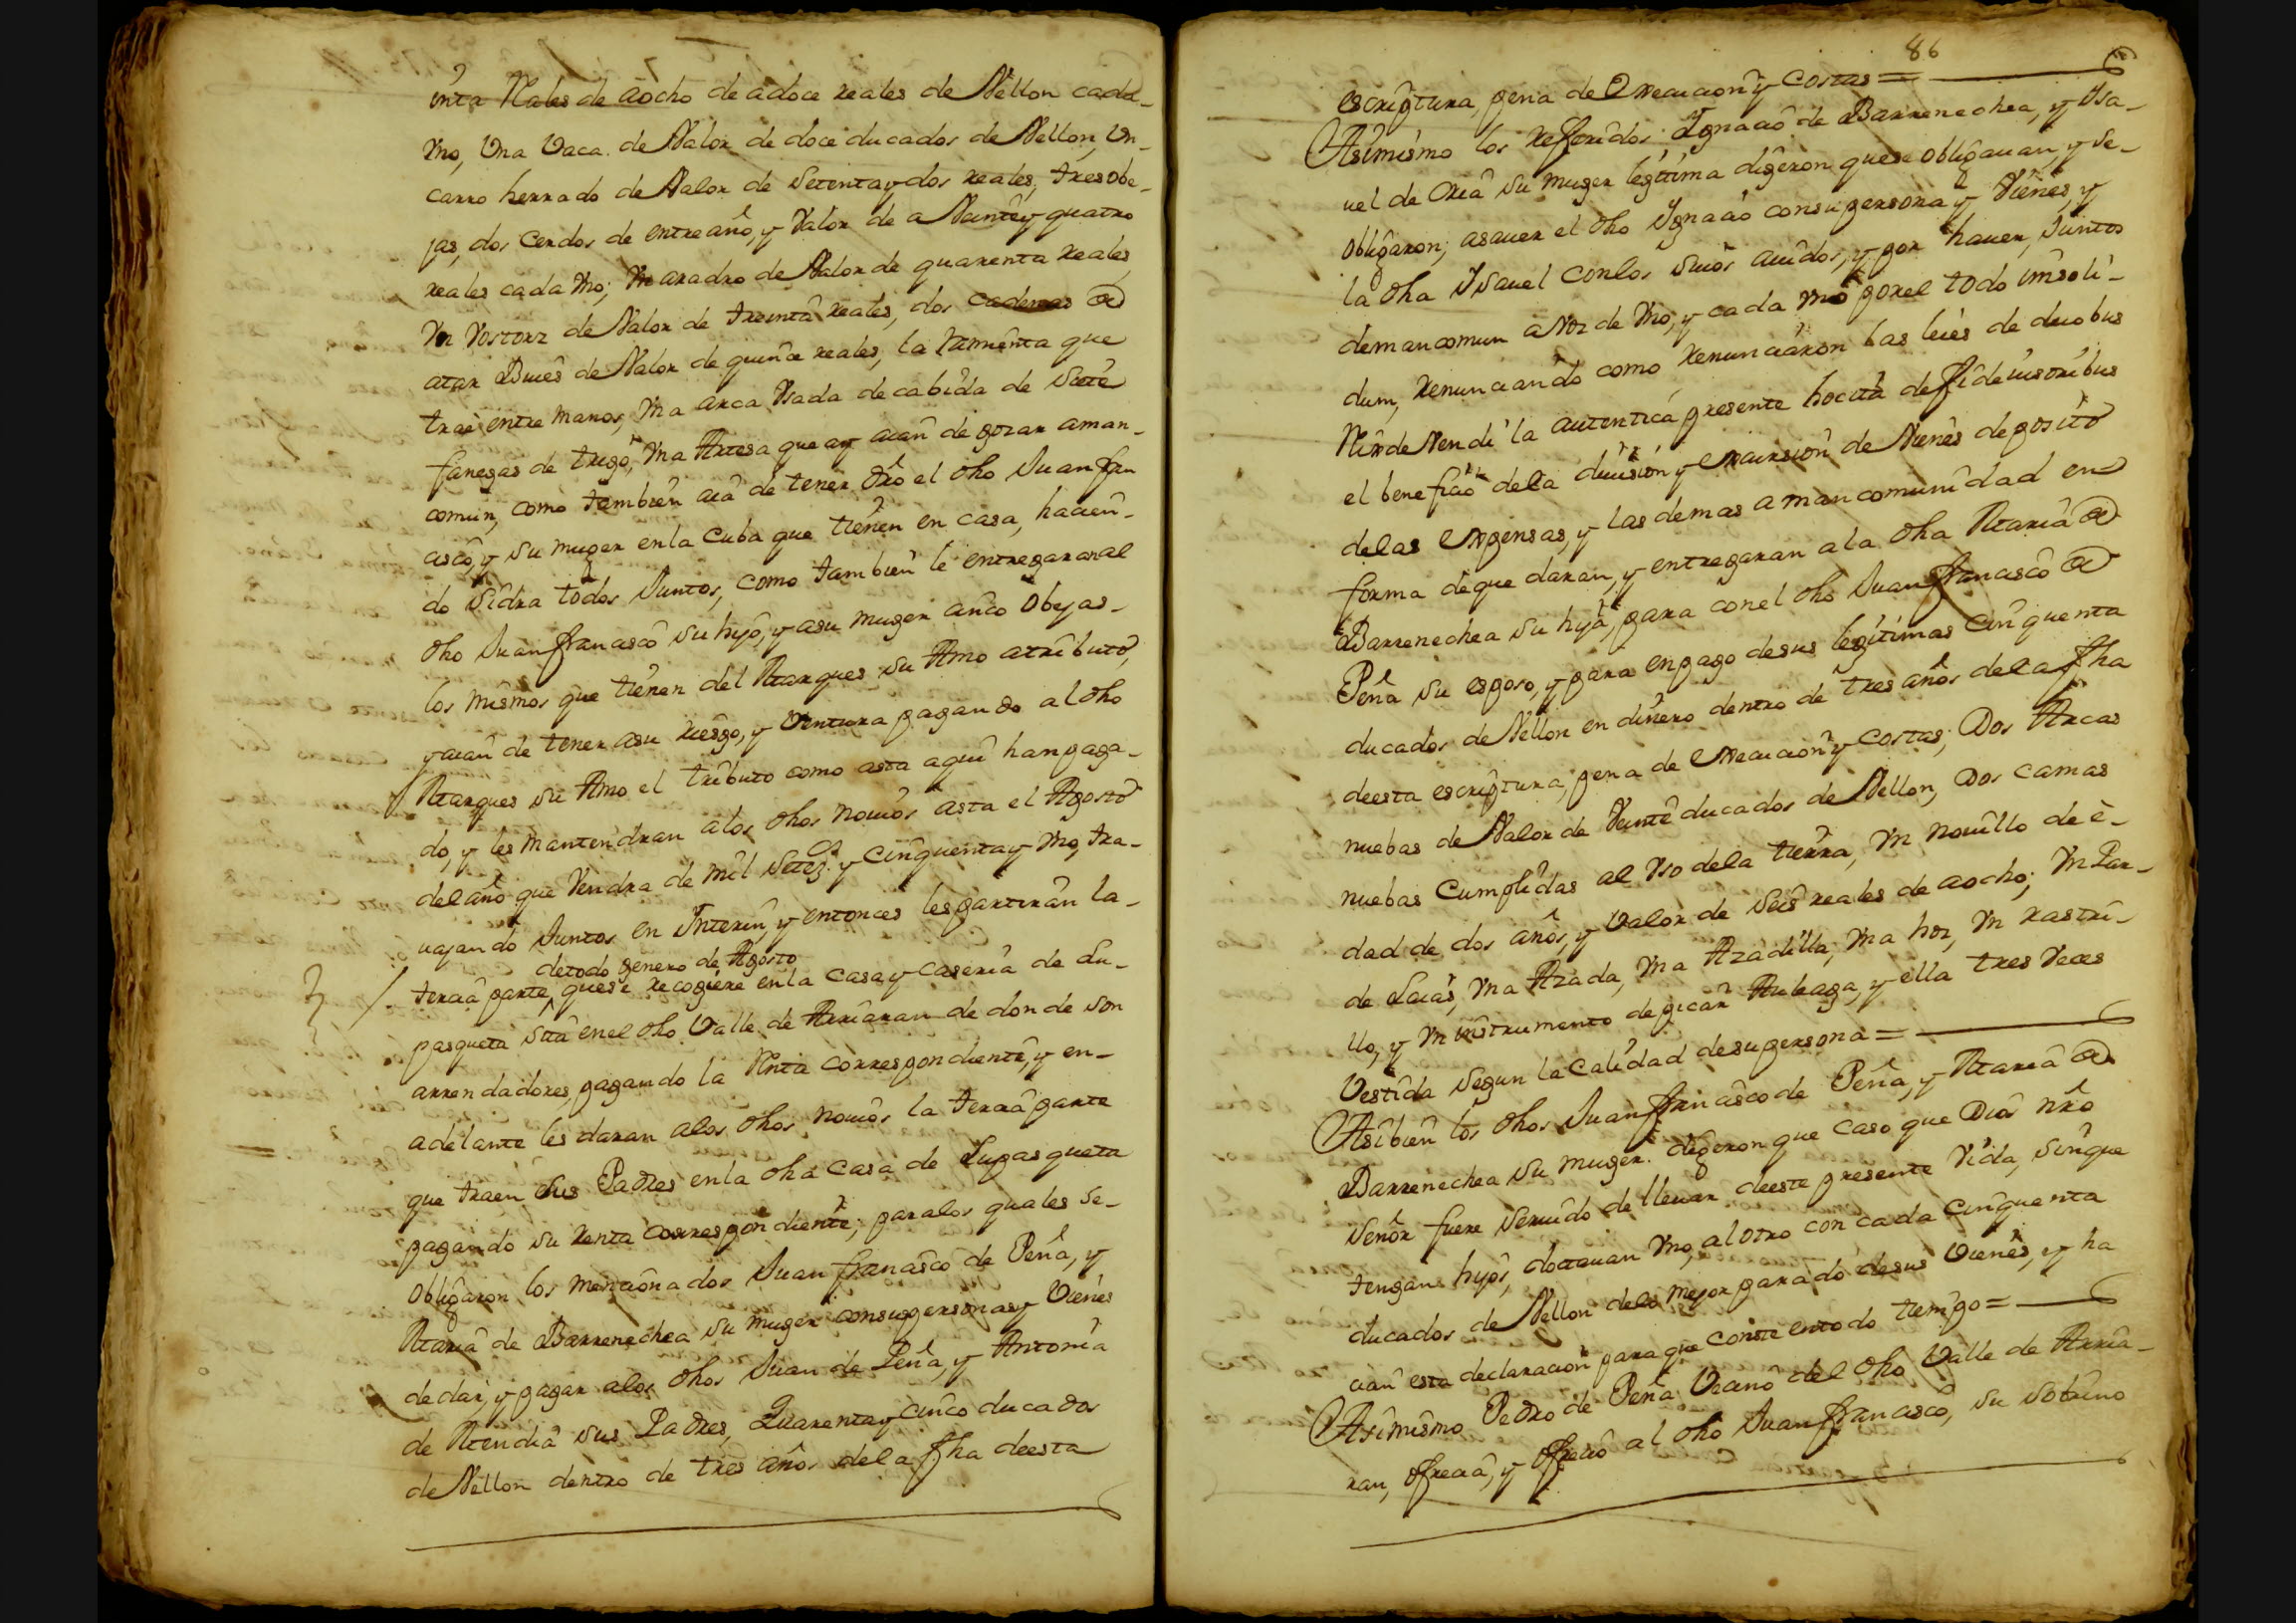 inta Rales de aocho de adoce reales de Vellon cada
Vno, Vna Vaca de Valor de doce ducados de Vellon, Vn
carro herrado de Valor de Setenta y dos reales, tres obe-
jas, dos cerdos de entreaño, y Valor de a Veinte y quatro
reales cada Vno; Vn aradro de Valor de quarenta reales
Vn Vostorz de Valor de treinta reales, dos cadenas de
atar Buies de Valor de quince reales, la ramienta que
trae entre manos, Vna arca Vsada de cabida de Siete
fanegas de trigo, Vna Artesa que ay aian de gozar aman-
comun, como tambien aia de tener dro el dho Juan fran
cisco, y su muger en la Cuba que tienen en casa, hacien-
do Sidra todos Juntos, como tambien le entregaran al
dho Juan francisco su hijo, y asu muger cinco Obejas
los mismos que tienen del Marques su Amo atributo,
y aian de tener asu riesgo, y Ventura pagando al dho
Marques su Amo el tributo como asta aqui han paga-
do, y les mantendran alos dhos novios asta el Agosto
del año que Vendra de mil Setez.s y cinquenta y Vno, tra-
uajando Juntos en Interin, y entonces les partiran la
de todo genero de Agosto
tercia parte, que se recogiere en la casa y caseria de Lu-
pasqueta sita en el dho Valle de Arriaran de donde son
arrendadores, pagando la Renta correspondiente, y en
adelante les daran alos dhos novios la tercia parte
que traen sus Padres en la dha casa de Lupasqueta
pagando su renta correspondiente; para los quales se
obligaron los mencionados Juan francisco de Peña, y
Maria de Barrenechea su muger con sus personas y Vienes
de dar, y pagar alos dhos Juan de Peña, y Antonia
de Mendia sus Padres, Quarenta y cinco ducados
de Vellon dentro de tres años dela fha deesta
86
escriptura, pena de Execucion y costas =
Asimismo los refferidos Ignacio de Barrenechea, y Isa-
uel de Oria su muger legitima digeron que se obligauan, y se
obligaron, asauer el dho Ignacio con su persona y Vienes, y
la dha Isauel con los suios auidos, y por hauer, Juntos
demancomun a Voz de Vno, y cada Vno por el todo insoli-
dum, renunciando como renunciaron las leies de duobus
Rix de Vendi la autentica presente hocita de fideiusoribus
el beneficio dela diuision y excursion de Vienes deposito
delas Expensas, y las demas a mancomunidad en
forma deque daran, y entregaran ala dha Maria de
Barrenechea su hija, para con el dho Juan francisco de
Peña su esposo, y para en pago desus legitimas cinquenta
ducados de Vellon en dinero dentro de tres años dela fha
deesta escriptura, pena de Execucion y costas, Dos Arcas
nuebas de Valor de Veinte ducados de Vellon, Dos camas
nuebas cumplidas al Vso dela tierra, Vn nouillo de e-
dad de dos años, y Valor de seis reales de aocho; Vn Par
de Laias, Vna Azada, Vna Azadilla, Vna hoz, Vn rastri-
llo, y Vn instrumento de picar Auleaga, y ella tres Veces
Vestida segun la calidad desu persona =
Asibien los dhos Juan francisco de Peña, y Maria de
Barrenechea su muger digeron que caso que Dios nro
Señor fuere seruido de lleuar deeste presente Vida, sin que
tengan hijos, dotauan Vno, al otro con cada cinquenta
ducados de Vellon delo mejor parado desus Vienes, y ha
cian esta declaracion para que conste en todo tiempo =
Asimismo Pedro de Peña Vecino del dho Valle de Arria-
ran, ofrecia, y ofrecio al dho Juan francisco, su sobrino